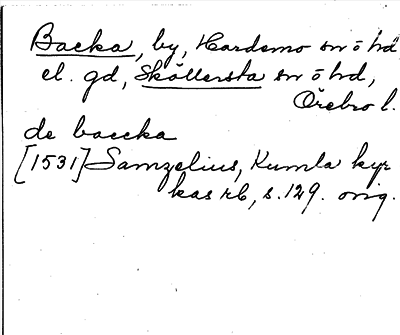 Backa, by, Hardemo sn ö hd
el. gd, Sköllersta sn ö hd,
Örebro l.
de baecka
[1531] Samzelius, Kumla kyr
kas rb, s. 129. orig.